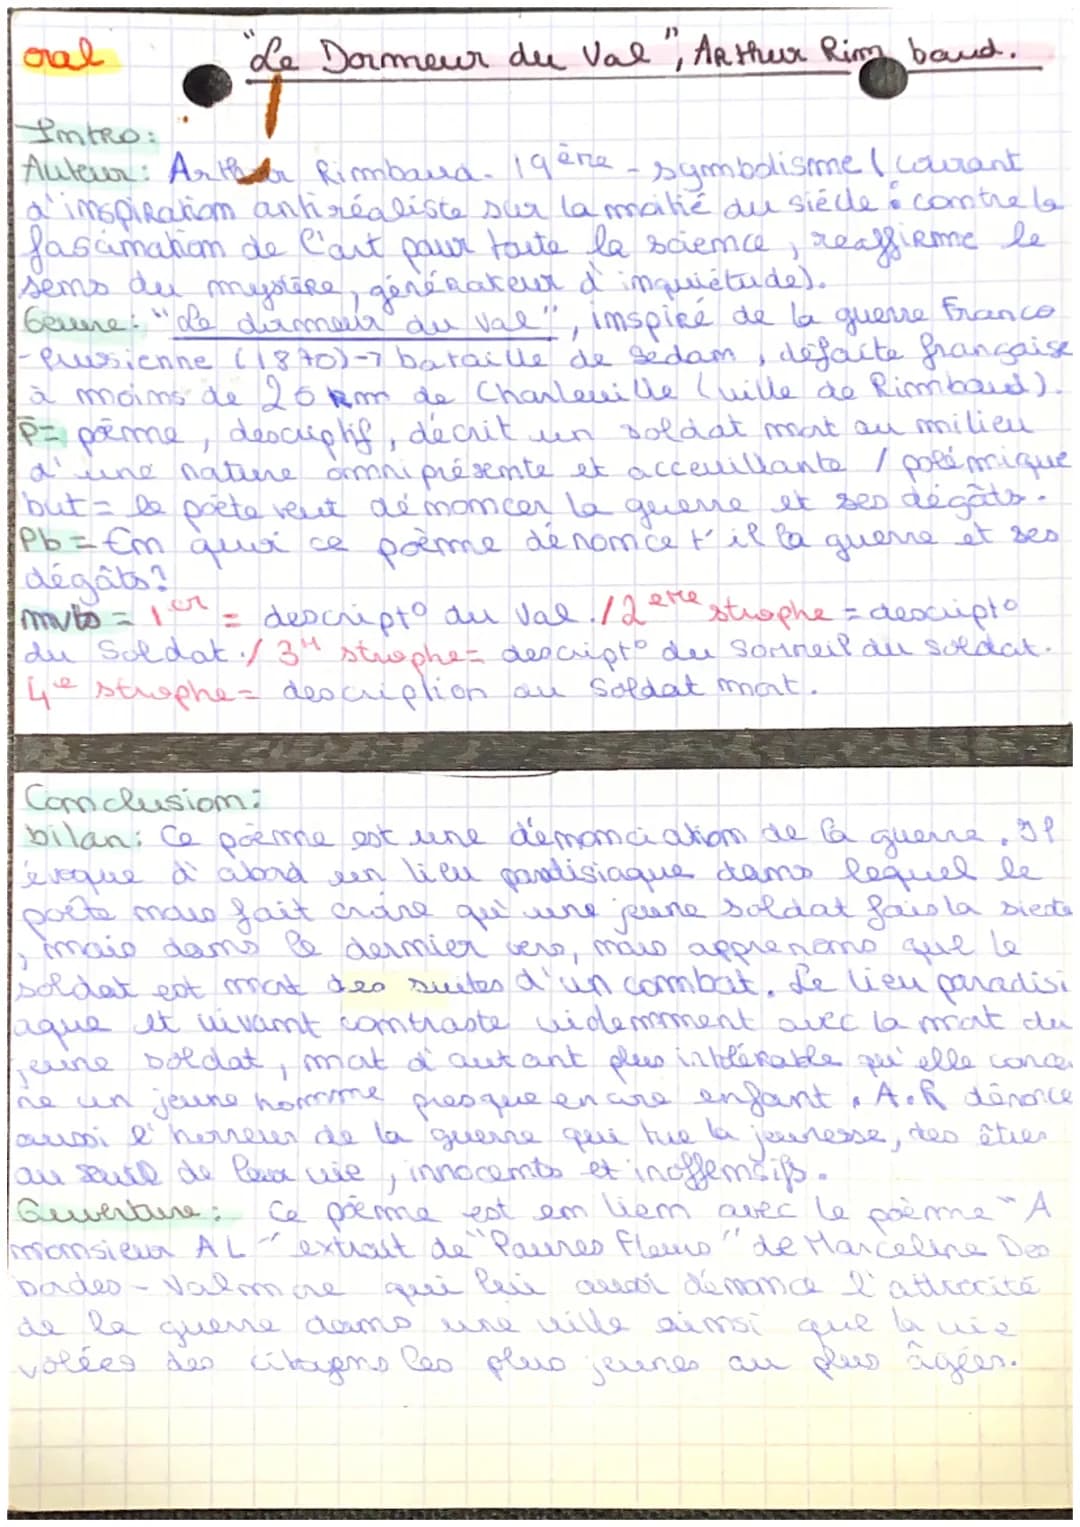 oral
"Le Dormeur du Val", Arthur Rimbaud.
Intro:
Auteur: Arthur Rimbaud - 19ème - symbolisme (courant
d'inspiration antiréaliste sur la moitié du siècle : contre la
fascination de l'art pour toute la science, reaffirme le
sens du mystère, générateur d'inquiétude).
Oeuvre: "Le dormeur du val", inspiré de la guerre Franco
-Prusienne (1870) → bataille de Sedan, défaite française
à moins de 20 km de Charleville (ville de Rimbaud).
P = poème, descriptif, décrit un soldat mort au milieu
d'une nature omniprésente et acceuillante / polémique
but = le poète veut dénoncer la guerre et ses dégâts.
Pb = En quoi ce poème dénonce t'il la guerre et ses
dégâts?
mvts = 1er = descript° du Val. / 2ème strophe = descript°
du Soldat. / 3 strophe = descript° du Sommeil du soldat.
4e strophe = description du Soldat mort.
Conclusion:
bilan: Ce poème est une dénonciation de la guerre. Il
évoque d'abord un lieu paradisiaque dans lequel le
poète nous fait croire qu'une jeune soldat fais la sieste
, mais dans le dernier vers, nous apprenons que le
soldat est mort des suites d'un combat. Le lieu paradisi
aque et vivant contraste videmment avec la mort du
jeune soldat, mort d'autant plus intolérable qu'elle concer
ne un jeune homme presque encore enfant. A.R dénonce
aussi l'horreur de la guerre qui tue la jeunesse, des êtres
au seuil de leur vie, innocents et inoffensifs.
Ouverture: Ce poème est en lien avec le poème "A
monsieur A L" extrait de "Pauvres Fleurs" de Marceline Des
bordes - Valmore qui lui aussi dénonce l'attrocité
de la guerre dans une ville ainsi que la vie
volées des citoyens les plus jeunes au plus âgées.